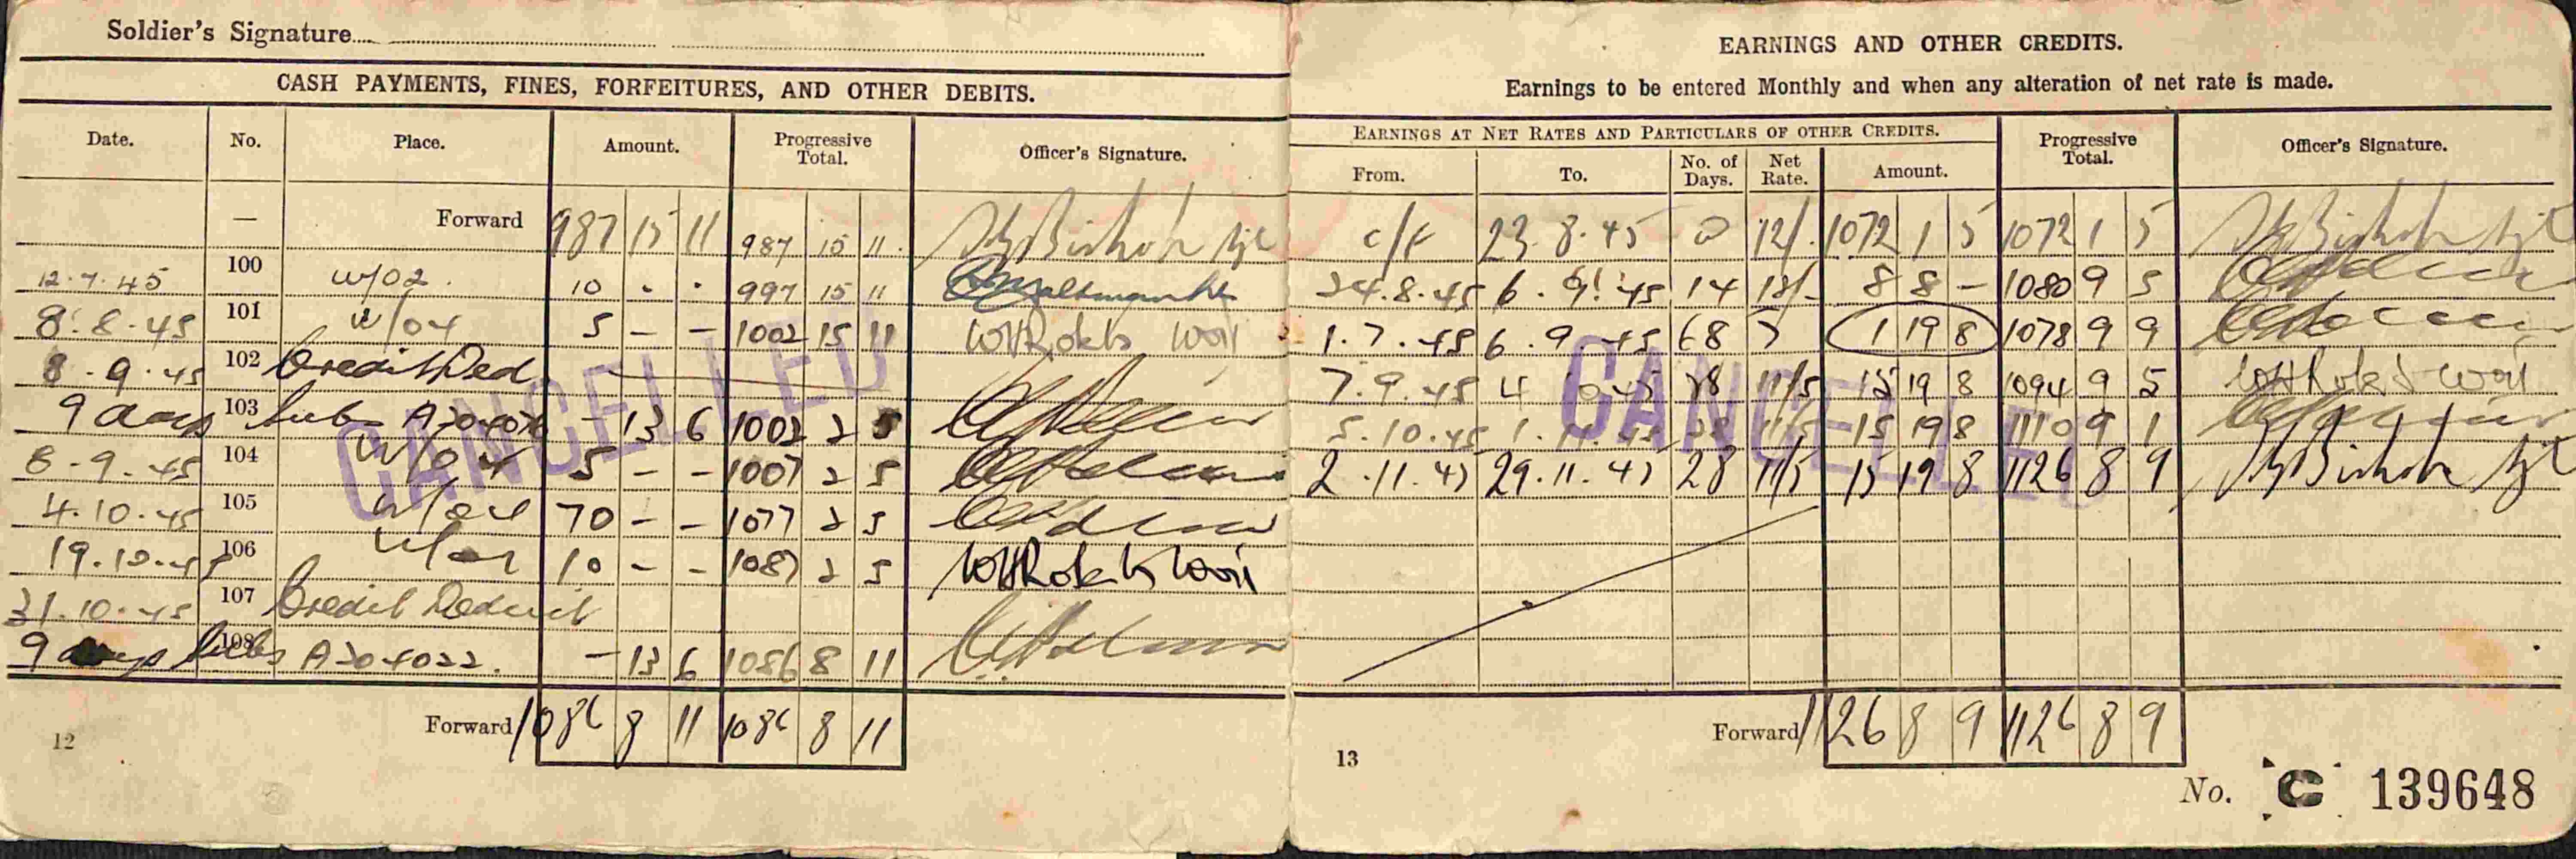 Soldier's Signature
CASH PAYMENTS, FINES, FORFEITURES, AND OTHER DEBITS.
Date. No. Place. Amount. Progressive Total. Officer's Signature.
— Forward 987 15 11 987 15 11
12.7.45 100 W/02. 10 . . 997 15 11
8.8.45 101 W/04 5 — — 1002 15 11
8.9.45 102 Credit Ded
9 days 103 Subs — 13 6 1002 2 5
8-9-45 104 W/04 5 — — 1007 2 5
4.10.45 105 70 — — 1077 2 5
19.10.45 106 10 — — 1087 2 5
31.10.45 107 Credit Deduct
9 days 108 Subs A204022. — 13 6 1086 8 11
Forward 1086 8 11 1086 8 11
12
EARNINGS AND OTHER CREDITS.
Earnings to be entered Monthly and when any alteration of net rate is made.
EARNINGS AT NET RATES AND PARTICULARS OF OTHER CREDITS. Progressive Total. Officer's Signature.
From. To. No. of Days. Net Rate. Amount.
c/f 23.8.45 12/. 1072 1 5 1072 1 5
24.8.45 6.9.45 14 12/- 8 8 — 1080 9 5
1.7.45 6.9.45 68 7 1 19 8 1078 9 9
7.9.45 4 28 11/5 15 19 8 1094 9 5
5.10.45 1.11.45 28 11/5 15 19 8 1110 9 1
2.11.45 29.11.45 28 11/5 15 19 8 1126 8 9
Forward 1126 8 9 1126 8 9
13
No. C 139648
CANCELLED
CANCELLED